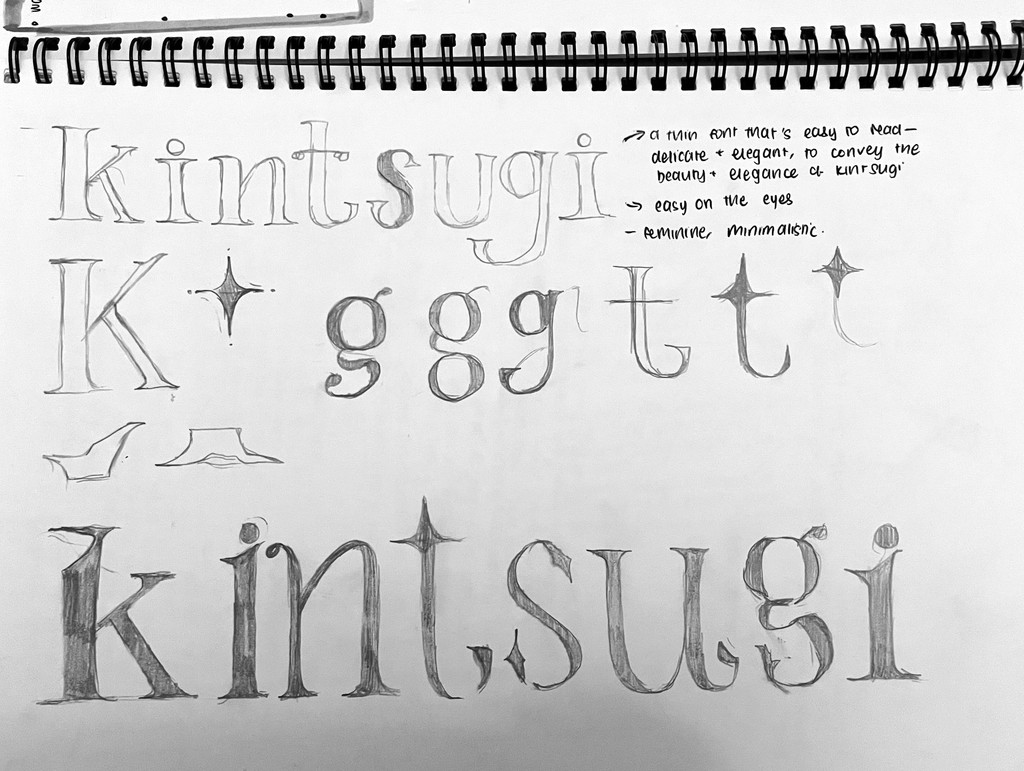 Kintsugi
→ a thin font that's easy to read –
delicate + elegant, to convey the
beauty + elegance of kintsugi
→ easy on the eyes
– feminine, minimalistic.
K g g g t t t
kintsugi